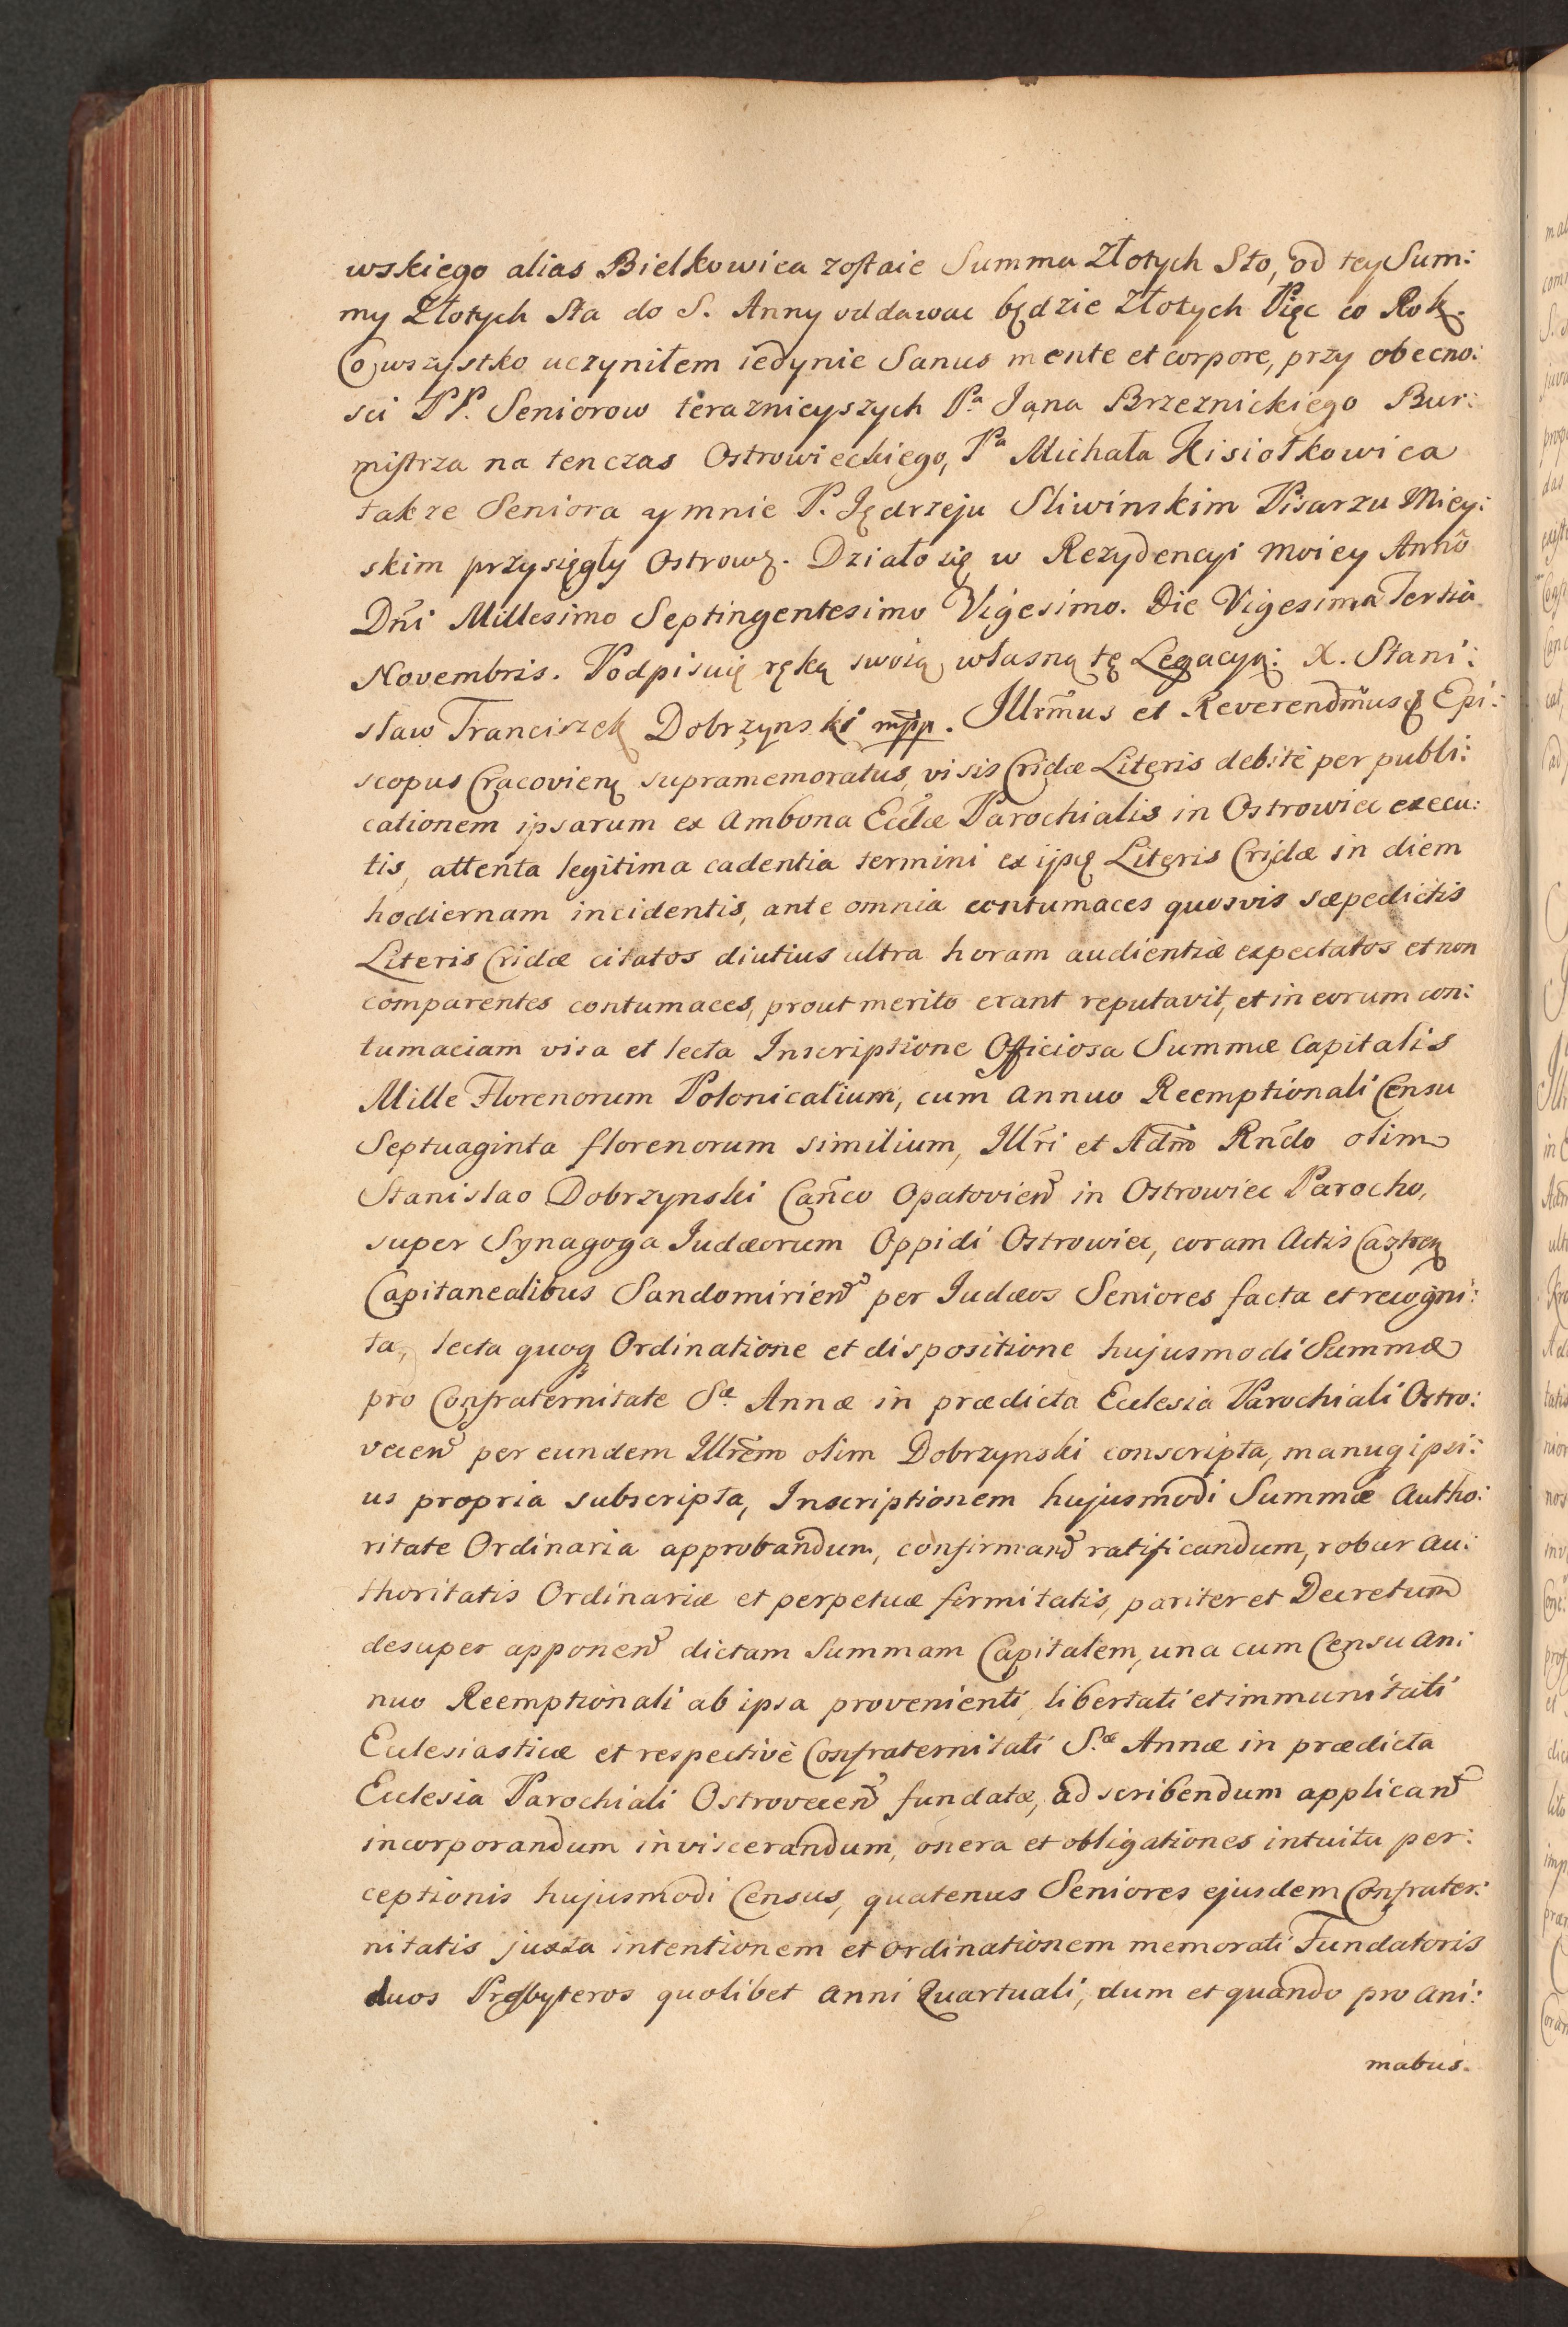 wskiego alias Bielkowica zostaie Summa Złotych Sto, od tey Sum:
my Złotych Sta do S. Anny oddawac będzie Złotych Pięc co Rok.
Co wszystko uczyniłem iedynie Sanus mente et corpore, przy obecno:
sci PP. Seniorow teraznieyszych Pa Jana Brzeznickiego Bur:
mistrza na tenczas Ostrowieckiego, Pa Michała Kisiołkowica
takze Seniora y mnie P. Jędrzeju Sliwinskim Pisarzu Miey:
skim przysięgły Ostrow. Działo się w Rezydencyi moiey Anno
Dni Millesimo Septingentesimo Vigesimo. Die Vigesima Tertia
Novembris. Podpisuię ręką swoią własną tę Legacyą: X. Stani:
sław Franciszek Dobrzynski mpp. Illrmus et Reverendmusq Epi:
scopus Cracovien supramemoratus, visis Cridæ Literis debitè per publi:
cationem ipsarum ex Ambona Ecclæ Parochialis in Ostrowiec execu:
tis, attenta legitima cadentia termini ex ijsq Literis Cridæ in diem
hodiernam incidentis, ante omnia contumaces quosvis sæpedictis
Literis Cridæ citatos diutius ultra horam audientiæ expectatos et non
comparentes contumaces, prout merito erant reputavit, et in eorum con:
tumaciam visa et lecta Inscriptione Officiosa Summæ Capitalis
Mille Florenorum Polonicalium, cum annuo Reemptionali Censu
Septuaginta florenorum similium, Illri et Admo Rndo olim
Stanislao Dobrzynski Canco Opatovien in Ostrowiec Parocho,
super Synagoga Judæorum Oppidi Ostrowiec, coram Actis Castren
Capitanealibus Sandomirien per Judæos Seniores facta et recogni:
ta, lecta quoq Ordinatione et dispositione hujusmodi Summæ
pro Confraternitate Sæ Annæ in prædicta Ecclesia Parochiali Ostro:
vecen per eundem Illrem olim Dobrzynski conscripta, manuq ipsi:
us propria subscripta, Inscriptionem hujusmodi Summæ Autho:
ritate Ordinaria approbandum, confirmand ratificandum, robur au:
thoritatis Ordinariæ et perpetuæ firmitatis, pariter et Decretum
desuper apponen dictam Summam Capitalem, una cum Censu an:
nuo Reemptionali ab ipsa provenienti, libertati et immunitati
Ecclesiasticæ et respectivè Confraternitati S.æ Annæ in prædicta
Ecclesia Parochiali Ostrovecen fundatæ, ad scribendum applican
incorporandum inviscerandum, onera et obligationes intuitu per:
ceptionis hujusmodi Census, quatenus Seniores ejusdem Confrater:
nitatis juxta intentionem et ordinationem memorati Fundatoris
duos Presbyteros quolibet anni Quartuali, dum et quando pro ani:
mabus.